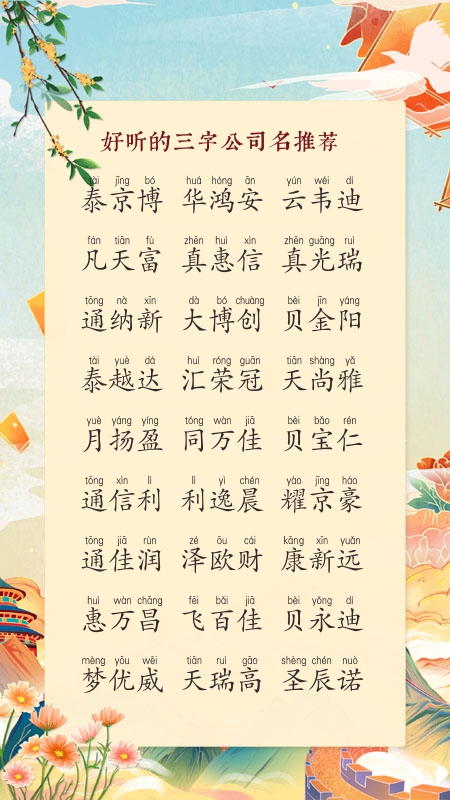 好听的三字公司名推荐
tài jīng bó huá hóng ān yún wéi dí
泰京博 华鸿安 云韦迪
fán tiān fù zhēn huì xìn zhēn guāng ruì
凡天富 真惠信 真光瑞
tōng nà xīn dà bó chuàng bèi jīn yáng
通纳新 大博创 贝金阳
tài yuè dá huì róng guān tiān shàng yǎ
泰越达 汇荣冠 天尚雅
yuè yáng yíng tóng wàn jiā bèi bǎo rén
月扬盈 同万佳 贝宝仁
tōng xìn lì lì yì chén yào jīng háo
通信利 利逸晨 耀京豪
tōng jiā rùn zé ōu cái kāng xīn yuǎn
通佳润 泽欧财 康新远
huì wàn chāng fēi bǎi jiā bèi yǒng dí
惠万昌 飞百佳 贝永迪
mèng yōu wēi tiān ruì gāo shèng chén nuò
梦优威 天瑞高 圣辰诺